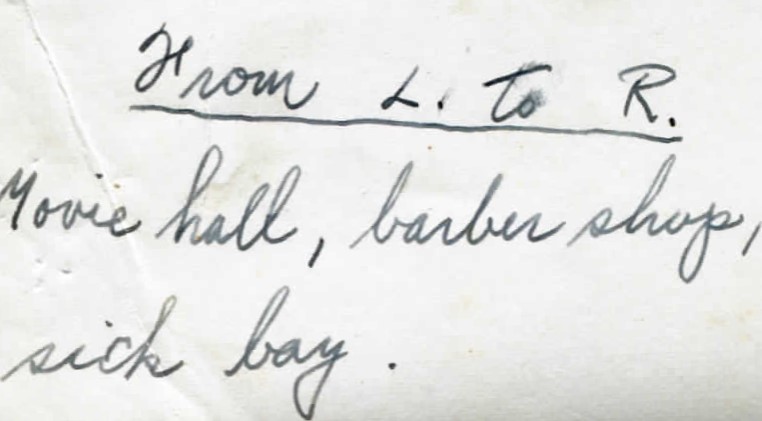 From L. to R.
Movie hall, barber shop,
sick bay.